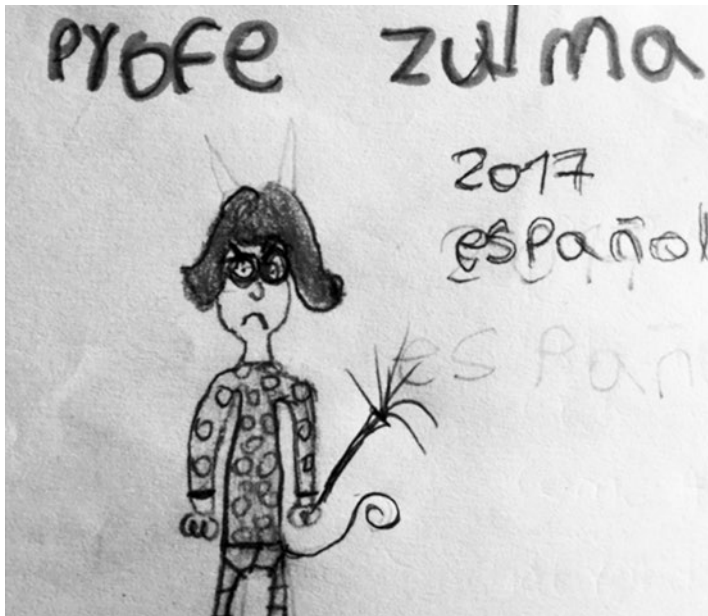 Profe Zulma
2017
español
españ